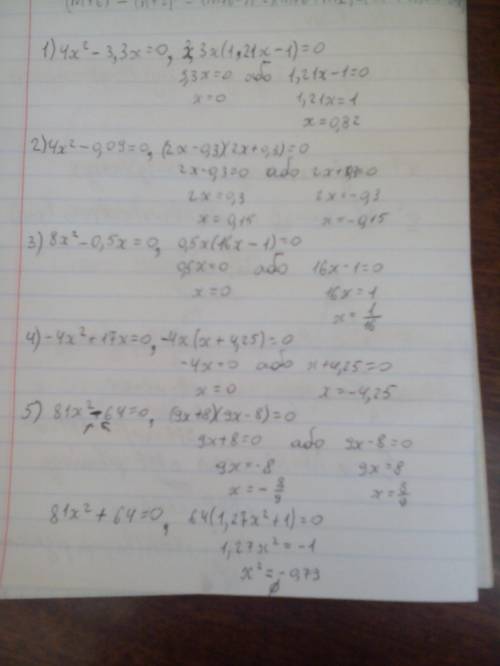 1) 4x² - 3,3x = 0, 3,3x(1,21x - 1) = 0
3,3x = 0 або 1,21x - 1 = 0
x = 0 1,21x = 1
x = 0,82
2) 4x² - 0,09 = 0, (2x - 0,3)(2x + 0,3) = 0
2x - 0,3 = 0 або 2x + 0,3 = 0
2x = 0,3 2x = -0,3
x = 0,15 x = -0,15
3) 8x² - 0,5x = 0, 0,5x(16x - 1) = 0
0,5x = 0 або 16x - 1 = 0
x = 0 16x = 1
x = 1/16
4) -4x² + 17x = 0, -4x(x + 4,25) = 0
-4x = 0 або x + 4,25 = 0
x = 0 x = -4,25
5) 81x² - 64 = 0, (9x + 8)(9x - 8) = 0
9x + 8 = 0 або 9x - 8 = 0
9x = -8 9x = 8
x = -8/9 x = 8/9
81x² + 64 = 0, 64(1,27x² + 1) = 0
1,27x² = -1
x² = -0,79
∅